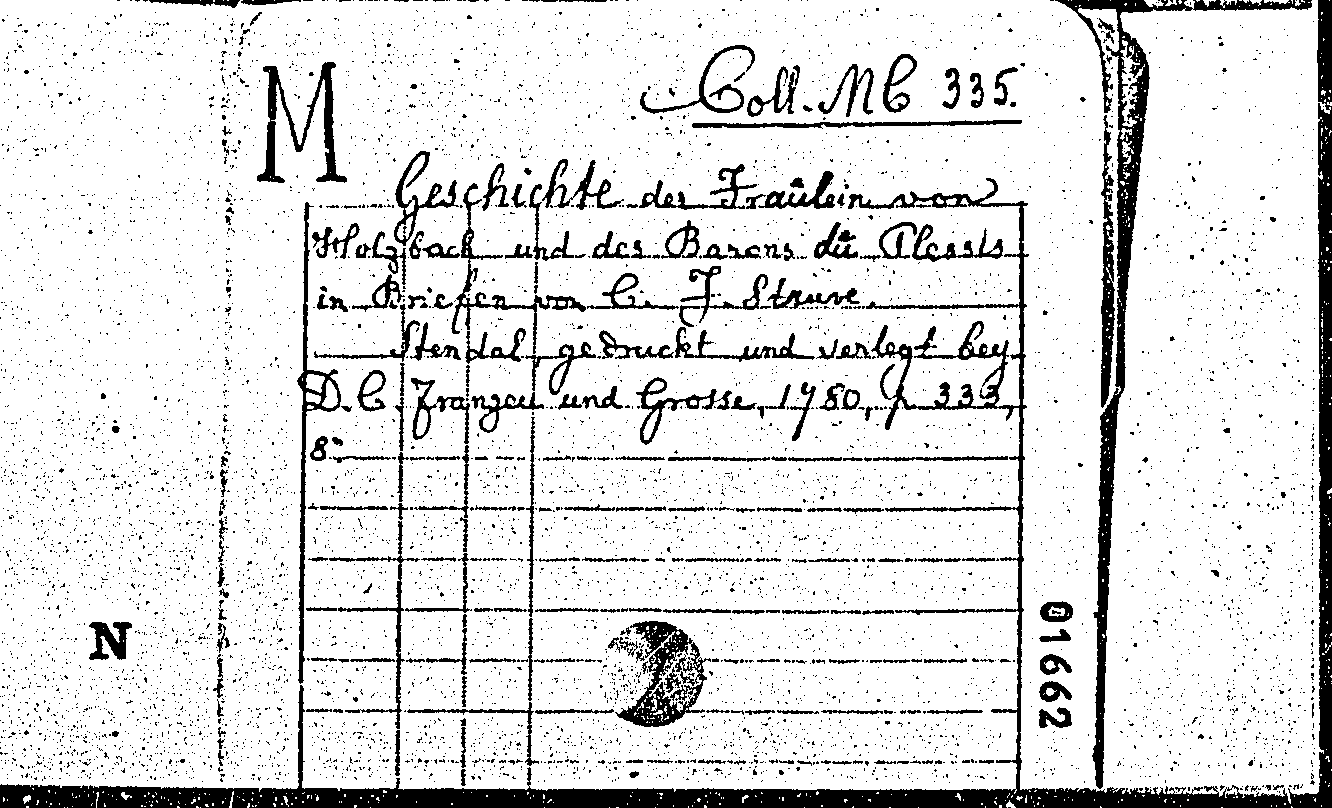 M
Coll. MC 335.
Geschichte der Fräulein von
Holzbach und des Barons dü Plessis
in Briefen von C. F. Struve.
Stendal, gedruckt und verlegt bey
D. C. Franzen und Grosse, 1780, p 333,
8°
N
01662